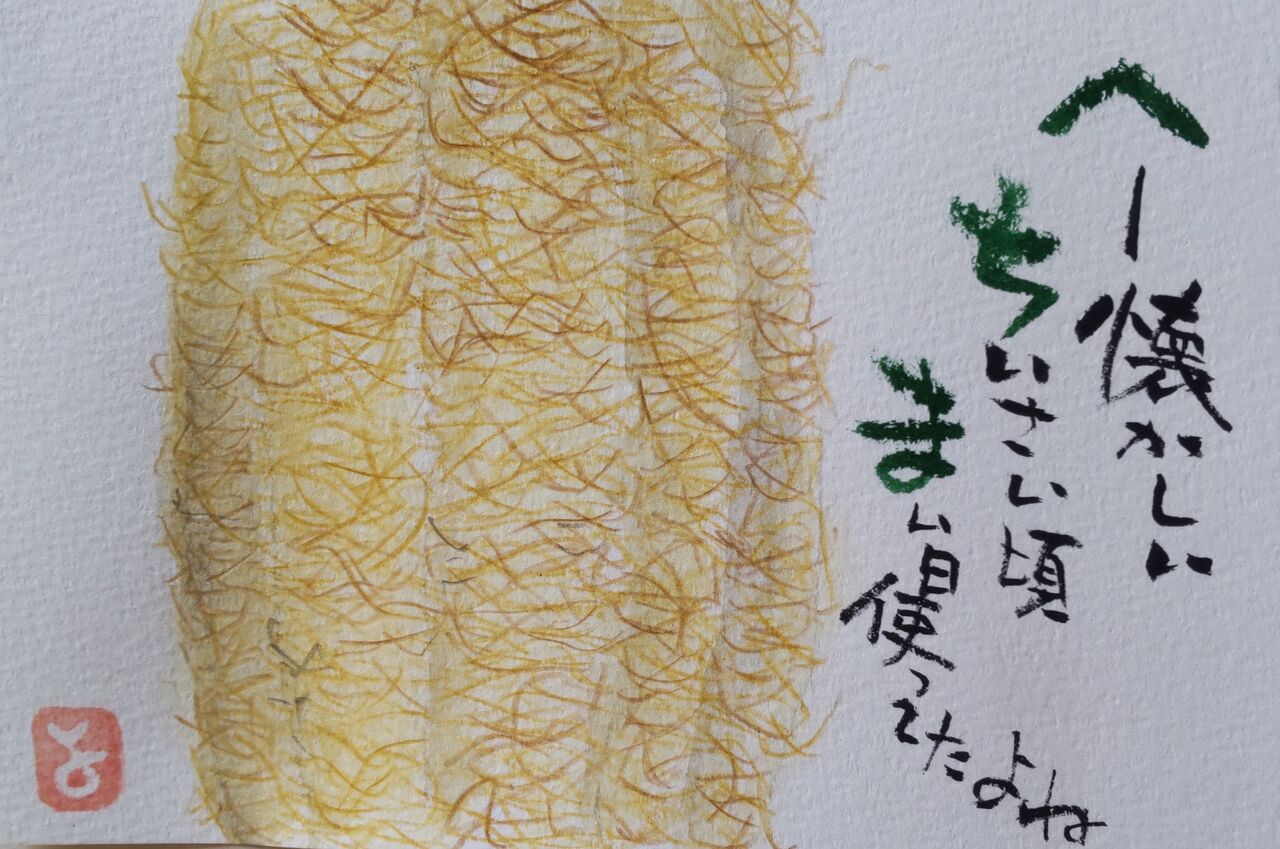 へー懐かしい
ちいさい頃
まい日使ってたよね